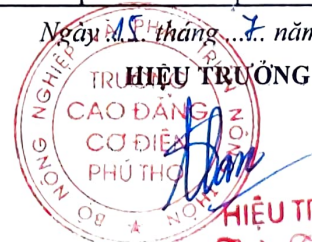 Ngày 15 tháng 7 năm
HIỆU TRƯỞNG
BỘ NÔNG NGHIỆP VÀ PHÁT TRIỂN NÔNG THÔN
TRƯỜNG
CAO ĐẲNG
CƠ ĐIỆN
PHÚ THỌ
HIỆU TR